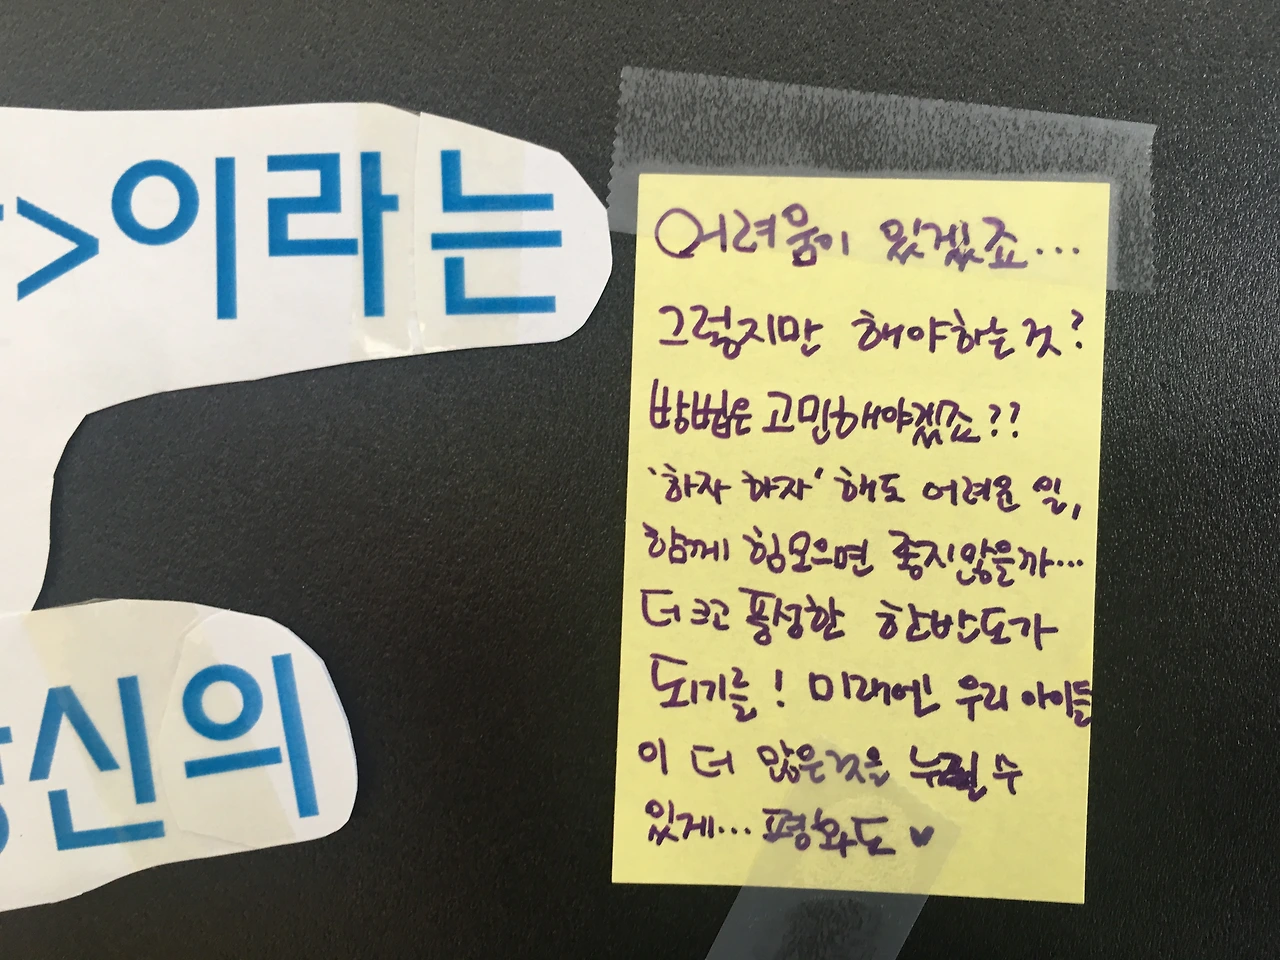 >이라는
신의
어려움이 있겠죠...
그렇지만 해야하는 것?
방법은 고민해야겠죠??
'하자 하자' 해도 어려운 일,
함께 힘모으면 좋지않을까...
더 크고 풍성한 한반도가
되기를! 미래엔 우리 아이들
이 더 많은것을 누릴 수
있게... 평화도 ♥